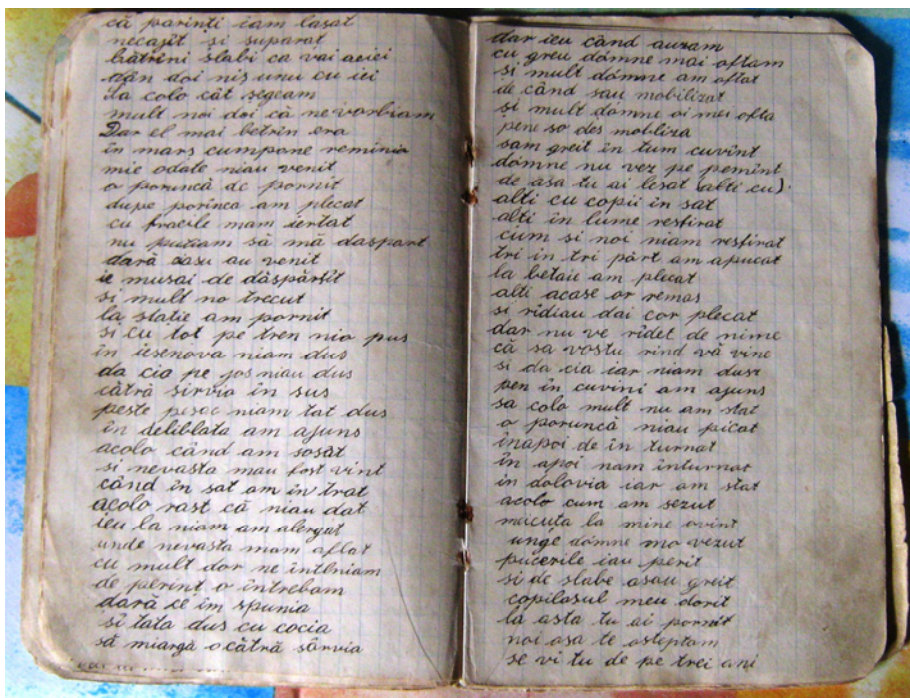 că parinti iam lasat
necajit si suparat
bătrini slabi ca vai aciei
dăn doi nis unu cu iei
La colo căt segeam
mult noi doi că ne vorbiam
Dar el mai betrin era
in mars cumpone reminia
mie odate niau venit
o poruncă de pornit
dupe porinca am plecat
cu fracile mam iertat
nu putiam să mă daspart
dară casu au venit
ie musai de dăspărtit
si mult no trecut
la statie am pornit
si cu tot pe tren nia pus
in iesenova niam dus
da cia pe jos niau dus
cătră sirvia in sus
peste pesac niam tat dus
in deliblata am ajuns
acolo când am sosăt
si nevasta mau fost vint
când in sat am in trat
acolo rast că niau dat
ieu la niam am alergat
unde nevasta mam aflat
cu mult dor ne intlniam
de perint o intrebam
dară ce im spunia
si tata dus cu cocia
să miargă o cătră sârvia
dar ieu când auzam
cu greu domne mai oftam
si mult dómne am oftat
de când sau mobilizat
si mult dómne oi mei ofta
pene so des mobliza
sam greit in tum cuvint
dómne nu vez pe pemint
de asa tu ai lesat (alti cu)
alti cu copii in sat
alti in lume resfirat
cum si noi niam resfirat
tri in tri părt am apucat
la betaie am plecat
alti acase or remas
si ridiau dai cor plecat
dar nu ve ridet de nime
că sa vostu rind vă vine
si da cia iar niam dusr
pen in cuvini am ajuns
sa colo mult nu am stat
o poruncă niau picat
inapoi de in turnat
in apoi nam inturnat
in dolovia iar am stat
acolo cum am sezut
măcuta la mine ovint
unge dómne mo vezut
pucerile iau perit
si de slabe asau greit
copilasul meu dorit
lă asta tu ai pornit
noi asa te asteptam
se vi tu de pe trei ani